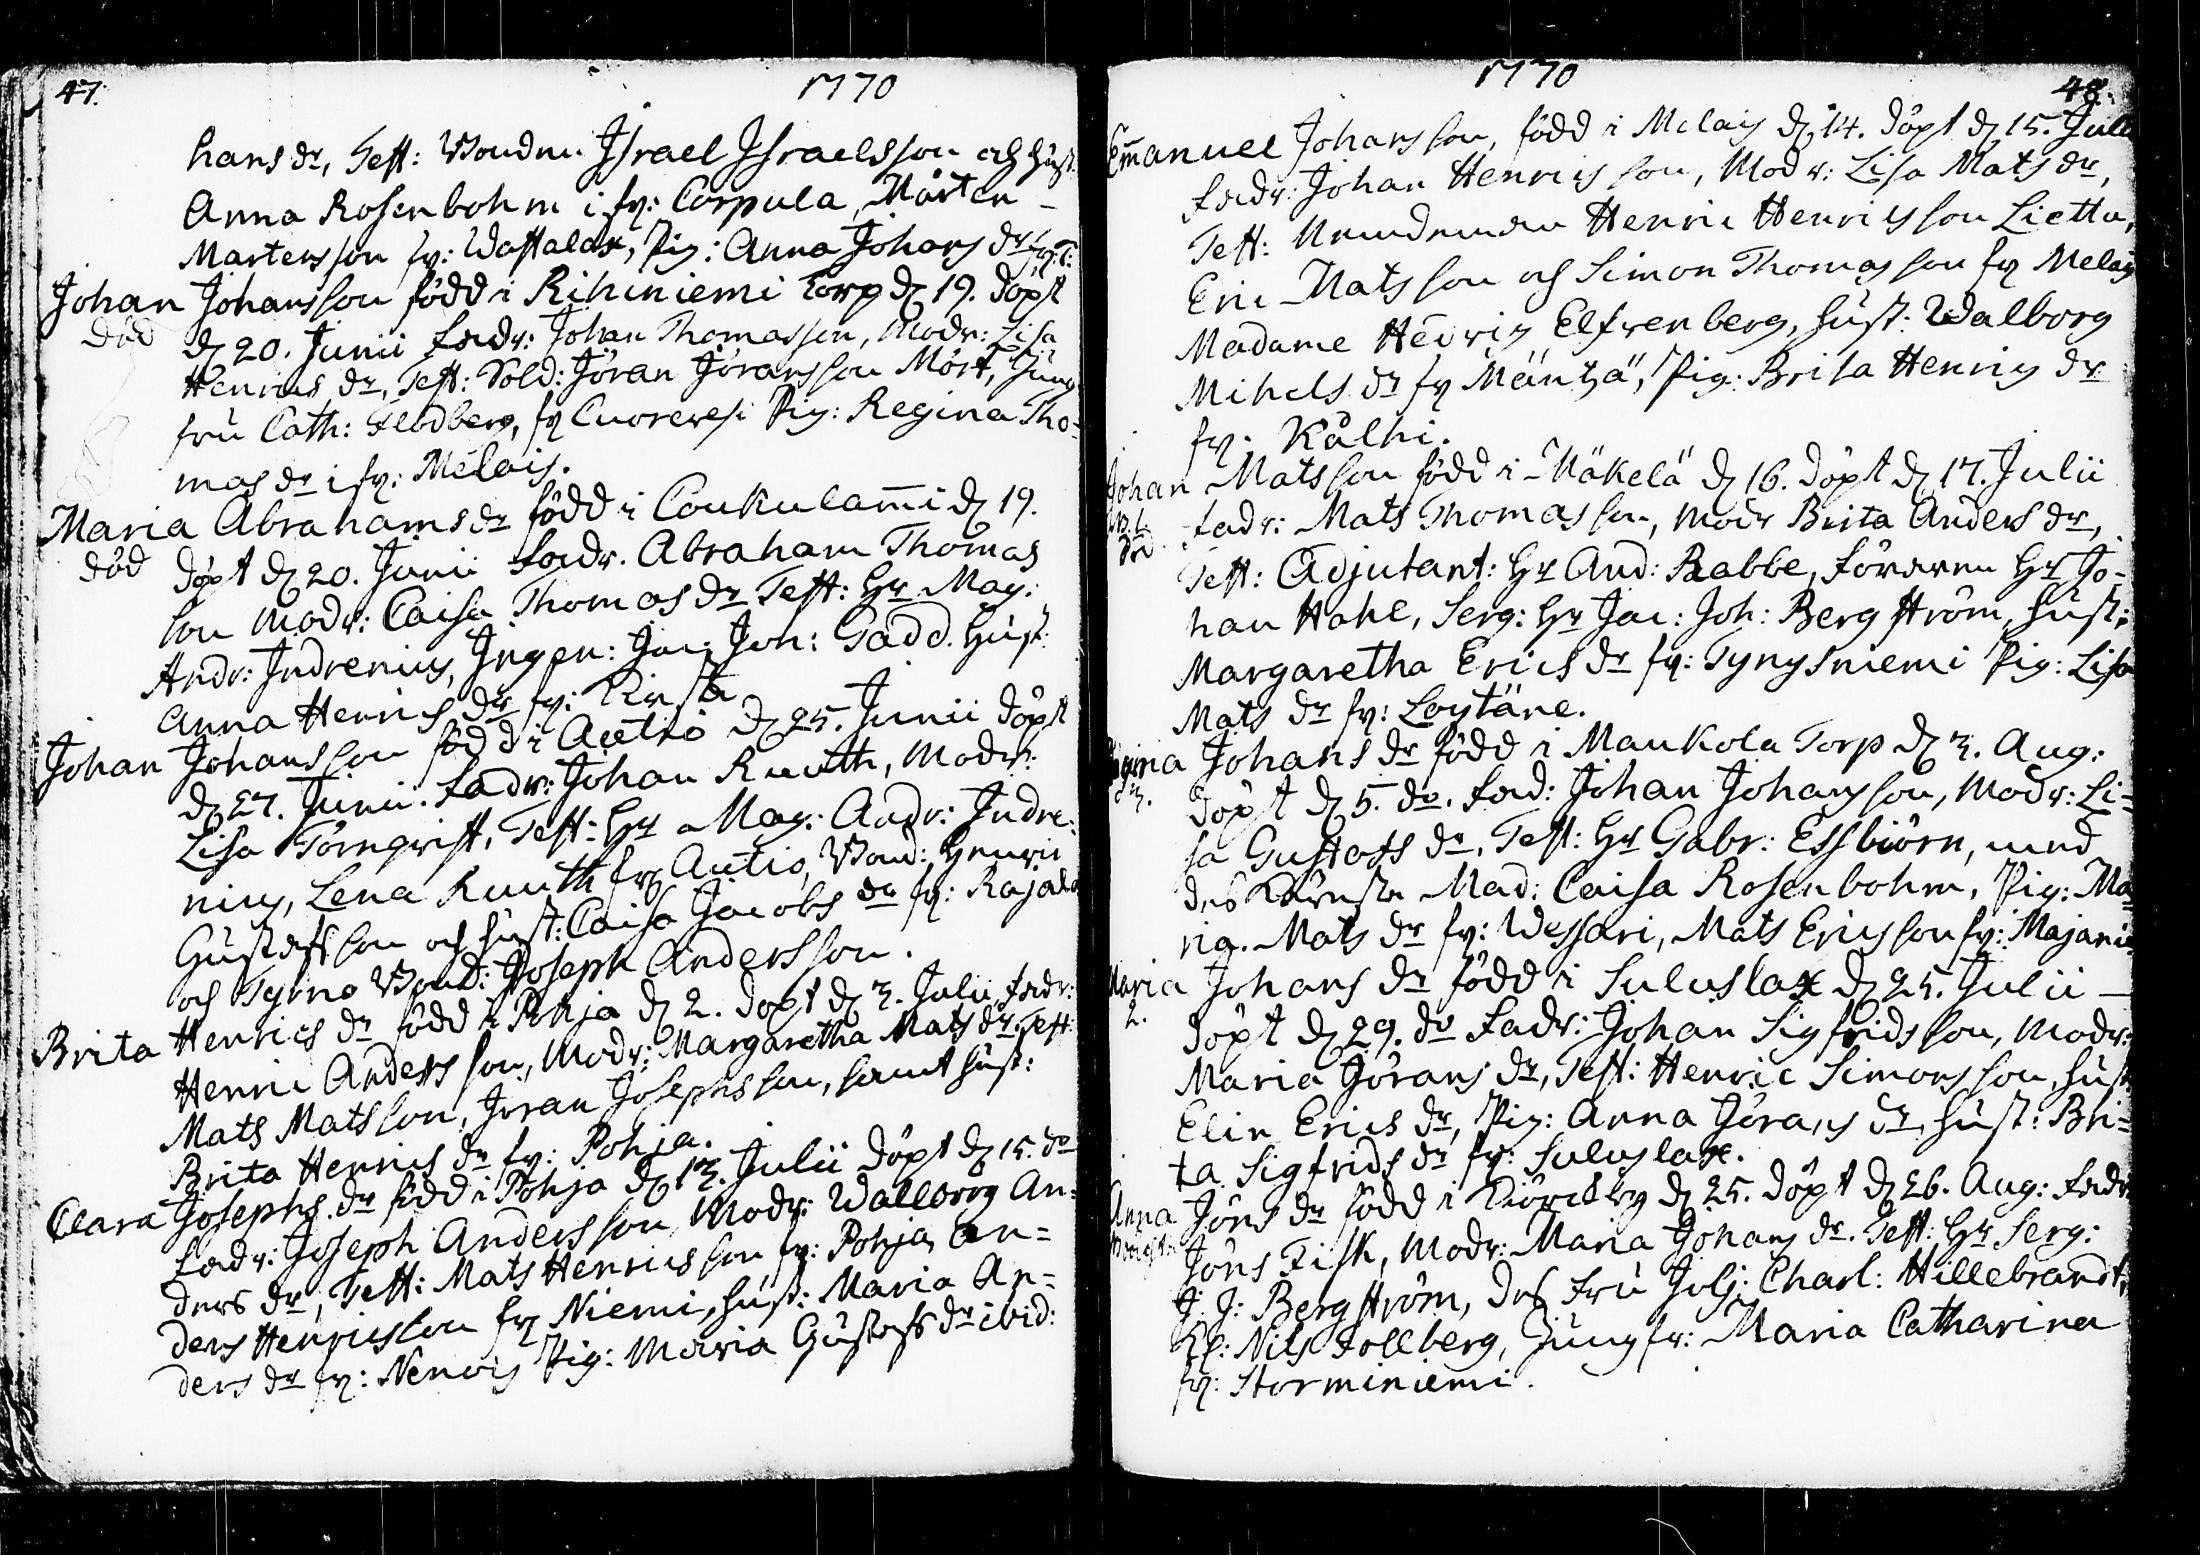 47. 1770
hans dr, Test: Bonden Israel Israelsson och hust:
Anna Rosenbohm i fr: Corpula, Mårten
Martensson fr: Wastalax, Pig: Anna Johans dr fr: T:
Johan Johansson född i Rihiniemi Torp d 19. döpt
död d 20. Junii Fadr: Johan Thomasson, Modr: Lisa
Henrics dr, Test: Sold: Jöran Jöransson Mört, Jung
fru Cath: Feldberg, fr Cuorevesi Pig: Regina Tho-
mas dr i fr: Melais.
Maria Abrahams dr född i Coukulam̄i d 19.
död döpt d 20. Junii Fadr. Abraham Thomas
son Modr: Caisa Thomas dr Test: Hr Mag:
Andr: Indrenius, Ingen: Jac: Joh: Gadd. Hust:
Anna Henrics dr fr: Kirsta
Johan Johansson född i Autio d 25. Junii döpt
d 27. Junii. Fadr: Johan Ruuth, Modr:
Lisa Törnqvist, Test: Hr Mag: Andr: Indre-
nius, Lena Ruuth fr Autio, Bond: Henric
Gustafsson och hust: Caisa Jacobs dr fr: Rajala
och Tyrno Bond: Joseph Andersson.
Brita Henrics dr född i Pohja d 2. döpt d 3. Julii Fadr:
Henric Andersson, Modr: Margaretha Mats dr. Test:
Mats Matsson, Jöran Josephsson, samt hust:
Brita Henrics dr fr: Pohja.
Clara Josephs dr född i Pohja d 13. Julii döpt d 15. do
Fadr: Joseph Andersson Modr: Wallborg An-
ders dr, Test: Mats Henricsson fr: Pohja, An-
ders Henricsson fr Niemi, hust: Maria An-
ders dr fr: Nenois Pig: Maria Gustafs dr ibid:
1770 48.
Em̄anuel Johansson, född i Melais d 14. döpt d 15. Julii
Fadr: Johan Henricsson, Modr: Lisa Mats dr,
Test: Nemdeman Henric Henricsson Liettu,
Eric Matsson och Simon Thomasson fr Melais
Madame Hedvig Elfrenberg, hust: Walborg
Mihels dr fr Mäntzä, Pig: Brita Henrics dr
fr: Kålhi.
Johan Matsson född i Mäkelä d 16. döpt d 17. Julii
död. Fadr: Mats Thomasson, Modr Brita Anders dr,
Test: Adjutant: Hr And: Rabbe, Föraren Hr Jo-
han Hahl, Serg: Hr Jac: Joh: Bergström, hust:
Margaretha Erics dr fr: Tynysniemi Pig: Lisa
Mats dr fr: Loytäne.
Regina Johans dr född i Maukola Torp d 3. Aug:
3. döpt d 5. do. Fad: Johan Johansson, Modr: Li-
sa Gustafs dr, Test: Hr Gabr: Essbiörn, med
des Käresta Mad: Caisa Rosenbohm, Pig: Ma-
ria Mats dr fr: Wessari, Mats Ericsson fr: Majanie
Maria Johans dr född i Suluslax d 25. Julii
2. döpt d 29. do Fadr: Johan Sigfridsson, Modr:
Maria Jörans dr, Test: Henric Simonsson, hust:
Elin Erics dr, Pig: Anna Jörans dr, hust: Bri-
ta Sigfrids dr fr: Suluslax.
Anna Jöns dr född i d 25. döpt d 26. Aug: Fadr:
Jöns Fisk, Modr: Maria Johans dr. Test: Hr Serg:
J. J: Bergström, des Fru Charl: Hillebrandt,
Nils Follberg, Jungfr: Maria Catharina
fr: Storminiemi.